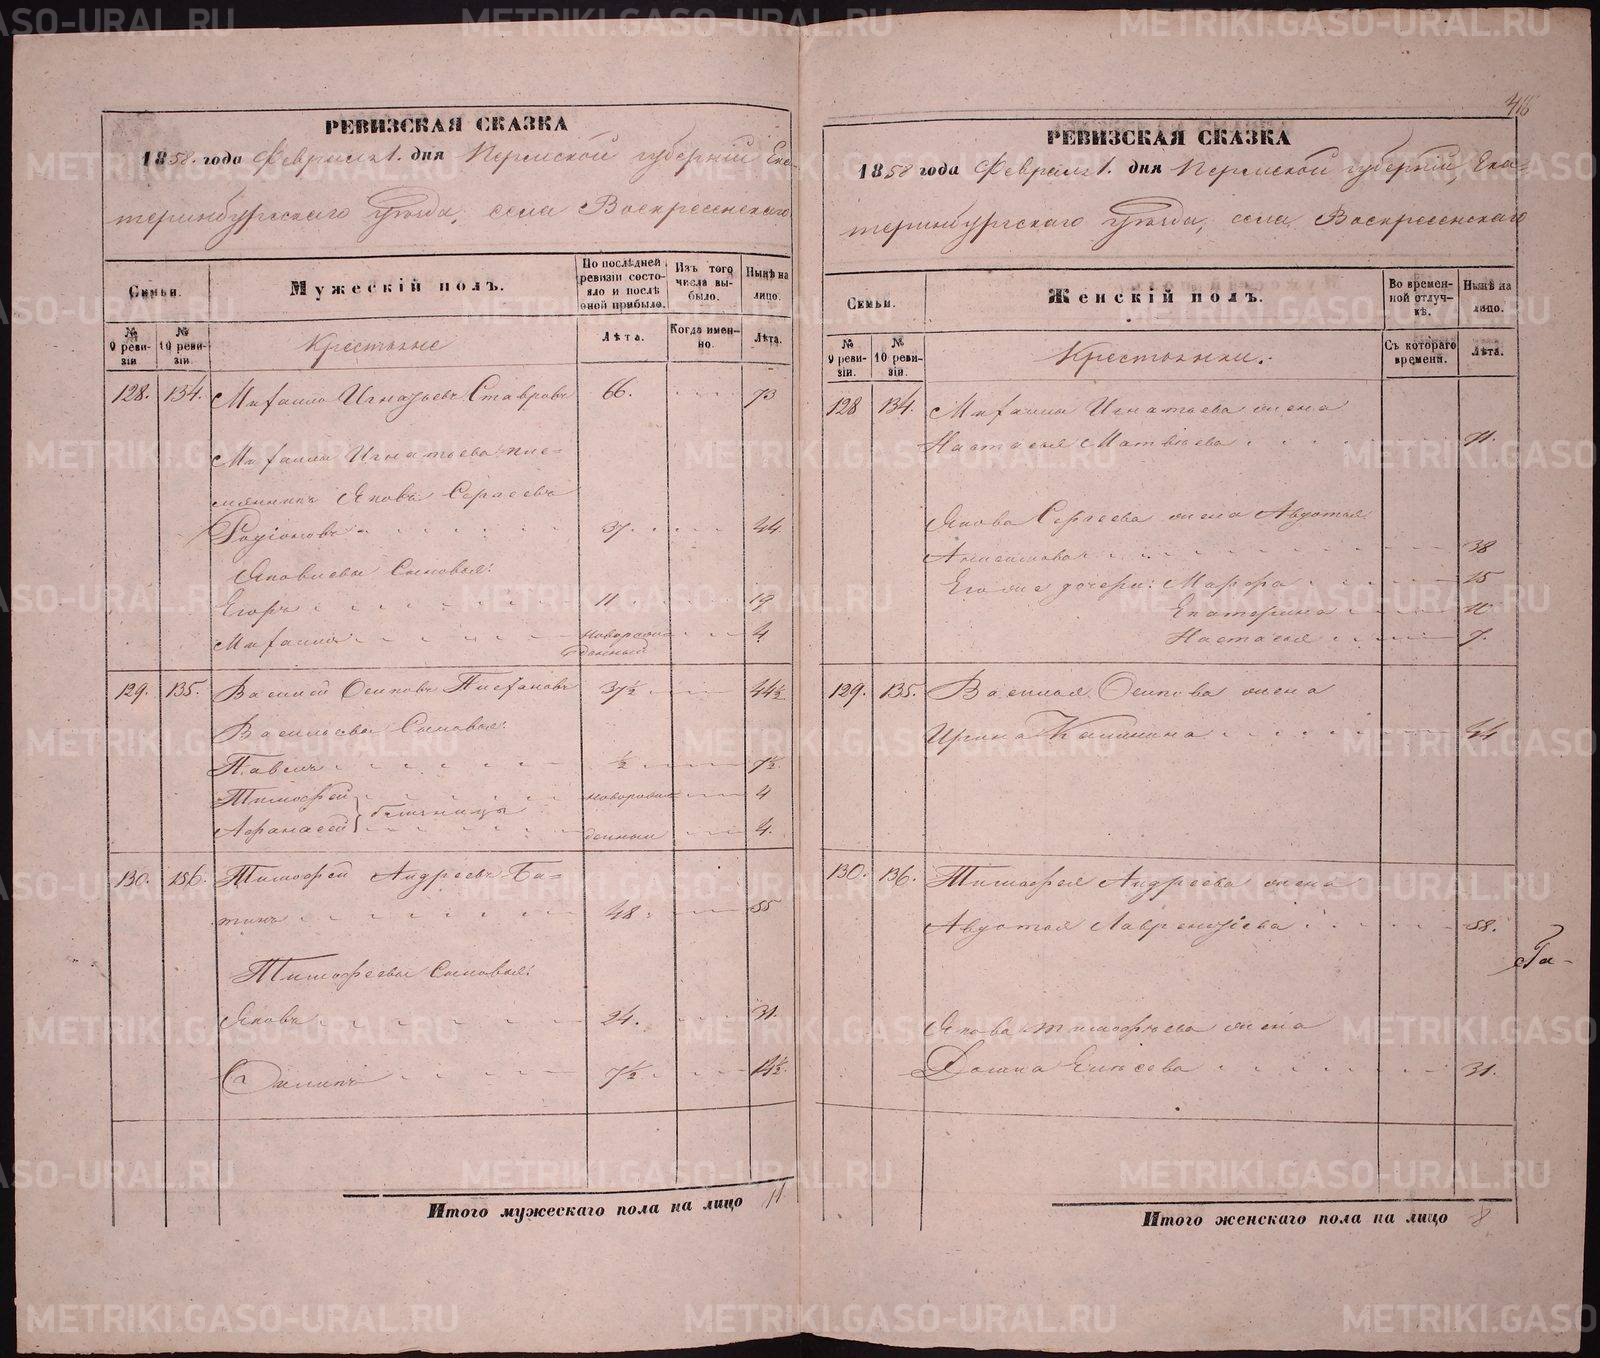 РЕВИЗСКАЯ СКАЗКА
1858. года Февраля 1. дня Пермской губерніи Ека-
теринбургскаго уѣзда, села Воскресенскаго
Семьи.
Мужескій полъ.
По послѣдней ревизіи состояло и послѣ оной прибыло.
Изъ того числа выбыло.
Нынѣ на лицо.
№ 9 ревизіи
№ 10 ревизіи
Крестьяне
Лѣта.
Когда именно.
Лѣта.
128. 134. Михаило Игнатьевъ Ставровъ 66. 73
Михаила Игнатьева пле-
мянникъ Яковъ Сергеевъ
Родіоновъ 37. 44.
Яковлевы Сыновья:
Егоръ 11 19
Михаило новорож- 4
денный
129. 135. Василей Осиповъ 37½ 44½
Васильевы Сыновья:
Павелъ ½ 7½
Тимофей новорож- 4
Афанасей близницы денныи 4.
130. 136. Тимофей Андреевъ Ба-
тинъ 48. 55
Тимофеевы Сыновья:
Яковъ 24. 31.
Филипъ 7½ 14½.
Итого мужескаго пола на лицо 11
416
РЕВИЗСКАЯ СКАЗКА
1858 года Февраля 1. дня Пермской губерніи, Ека-
теринбургскаго уѣзда, села Воскресенскаго
Семьи.
Женскій полъ.
Во временной отлучкѣ.
Нынѣ на лицо.
№ 9 ревизіи.
№ 10 ревизіи.
Крестьянки.
Съ котораго времени.
Лѣта.
128 134. Михаила Игнатьева жена
Настасья Матвѣева 71.
Якова Сергеева жена Авдотья
Анисимова 38
Его же дочери: Марфа 15
Екатерина 10
Настасья 7.
129. 135. Василья Осипова жена
Ирина Калинина 44
130. 136. Тимофея Андреева жена
Авдотья Лаврентіева 58.
Якова Тимофѣева жена
Домна Елисеева 31.
Итого женскаго пола на лицо 8
METRIKI.GASO-URAL.RU